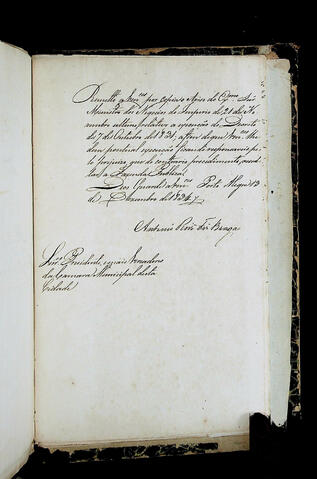 Remetto a Vm.ces por copia o Aviso do Ex.mo Snr.
Ministro dos Negocios do Imperio de 21 de No
vembro ultimo, relativo a execução do Decreto
de 7 de Outubro de 1831, a fim de que Vm.ces lhe
dem pontual execução, ficando responsaveis pe
lo prejuizo que do contrario
a Fazenda Publica.
Deos Guarde a Vm.ces Porto Alegre 13
de Dezembro de 1834
Antonio Roiz Frz Braga
Snr.es Presidente, e mais Vereadores
da Camara Municipal desta
Cidade